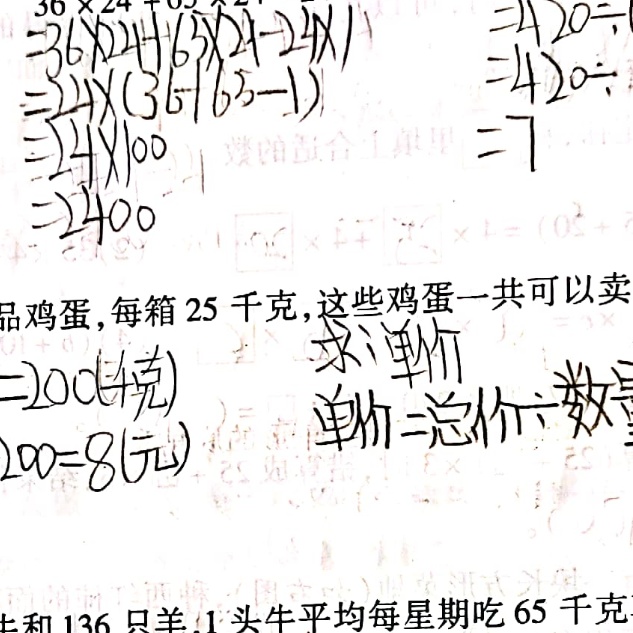 =36×24+65×24-24×1
=24×(36+65-1)
=24×100
=2400
=420÷
=420÷
=7
品鸡蛋,每箱25千克,这些鸡蛋一共可以卖
=200(千克)
200=8(元)
求:单价
单价=总价÷数量
牛和136只羊,1头牛平均每星期吃65千克